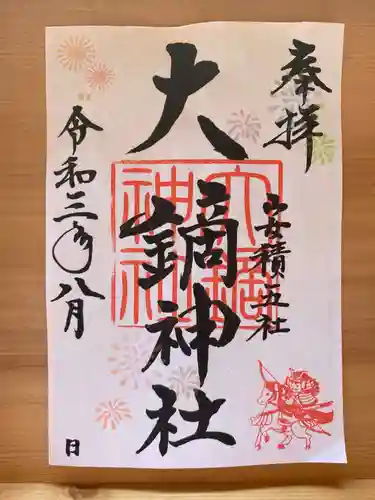 奉拝
安積三五社
大鏑神社
大鏑神社
令和三年八月
日